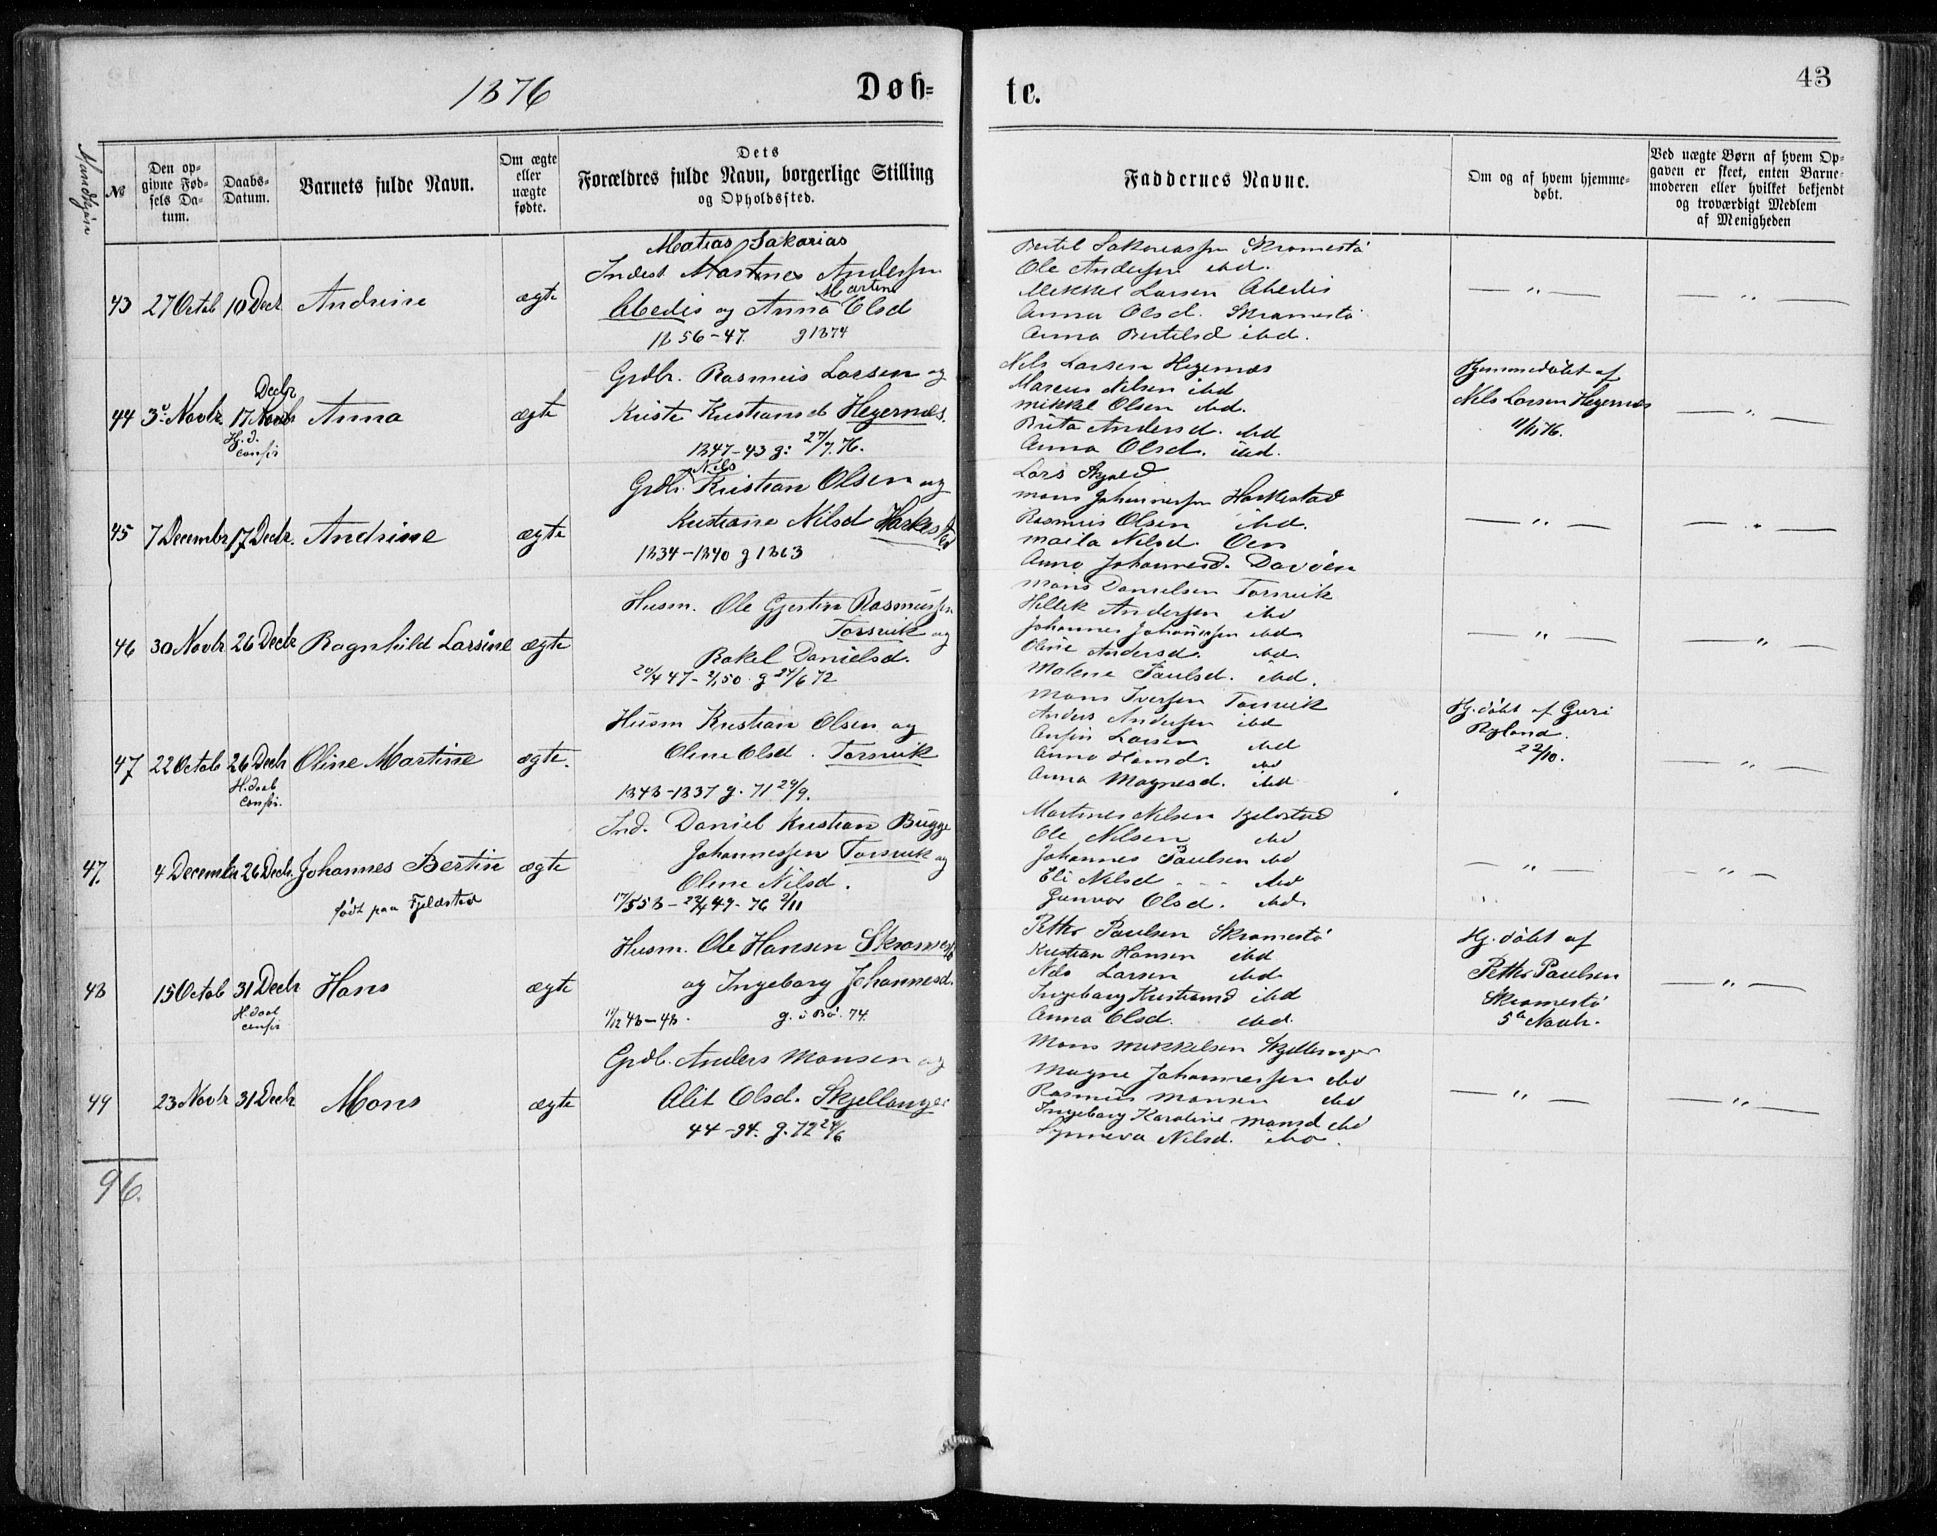 1876
Døb=
te.
43
Mandkjøn
No
Den op=
givne Fød=
sels Da=
tum.
Daabs=
Datum.
Barnets fulde Navn.
Om ægte
eller
uægte
fødte.
Dets
Forældres fulde Navn, borgerlige Stilling
og Opholdssted.
Faddernes Navne.
Om og af hvem hjemme=
døbt.
Ved uægte Børn af hvem Op=
gaven er skeet, enten Barne=
moderen eller hvilket bekjendt
og troværdigt Medlem
af Menigheden
43 27 Octob 10 Decbr Andrine ægte
Matias Sakarias
Inderst Martines Andersen
Martine
Abedis og Anna Olsd
1856-47. g 1874
Bertel Sakariassen Skromestø
Ole Andersen ibd.
Mikkel Larsen Abedis
Anna Olsd. Skromestø
Anna Bertelsd ibd.
— " — — " —
44 3d Novbr 17 Novb Anna ægte
Decbr
Hj. d.
confir
Grdbr. Rasmus Larsen og
Kriste Kristiansd Hegernæs.
1847-43 g: 27/7.76.
Nils Larsen Hegernæs
Marcus Nilsen ibd
Mikkel Olsen ibd.
Brita Andersd. ibd
Anna Olsd. ibd.
Hjemmedøbt af
Nils Larsen Hegernæs
4/11 76.
— " —
45 7 Decembr 17 Decbr. Andrine ægte
Nils
Grdbr. Kristian Olsen og
Kristiane Nilsd Harkestad
1834-1840 g 1863
Lars
Mons Johannessen Harkestad
Rasmus Olsen ibd.
Marta Nilsd. Oen
Anna Johannesd. Davøen
— " — — " —
46 30 Novbr 26 Decbr Ragnhild Larsine ægte
Husm. Ole Gjertin Rasmussen
Torsvik og
Rakel Danielsd.
20/4 47 - 2/1 50. g 24/6 72
Mons Danielsen Torsvik
Hellek Andersen ibd
Johannes Johannessen ibd
Oline Andersd. ibd.
Malene Paulsd. ibd.
— " — — " —
47 22 Octob 26 Decbr Oline Martine ægte.
H. daab
confir.
Husm Kristian Olsen og
Oline Olsd. Torsvik
1848-1837 g. 71 24/9.
Mons Iversen Torsvik
Anders Andersen ibd
Larsen ibd
Anna Hansd. ibd
Anna Magnesd. ibd
Hj. døbt af Guri
Ryland.
22/10.
— " —
47. 4 Decembr 26 Decbr. Johannes Bertin ægte
født paa Fjeldstad
Ind. Daniel Kristian Bugge
Johannessen Torsvik og
Oline Nilsd.
17/5 58 - 22/4 49 - 76 2/11
Martines Nilsen Fjeldstad
Ole Nilsen ibd
Johannes Paulsen ibd
Eli Nilsd ibd
Gunvor Olsd. ibd.
— " — — " —
48 15 Octob 31 Decbr Hans ægte
H. daab
confir
Husm. Ole Hansen Skromestø
og Ingeborg Johannesd.
19/12 48-48. g. i Bø. 74.
Petter Paulsen Skromestø
Kristian Hansen ibd
Nils Larsen ibd
Ingeborg Kristiansd ibd
Anna Olsd. ibd.
Hj. døbt af
Petter Paulsen
Skromestø
5te Novbr.
— " —
49 23 Novbr 31 Decbr Mons ægte
Grdbr. Anders Monsen og
Alit Olsd. Skjellanger
44-34. g. 72 24/6
Mons Mikkelsen Skjellanger
Magne Johannessen ibd
Rasmus Monsen ibd
Ingeborg Karoline Monsd ibd
Synneva Nilsd. ibd.
— " — — " —
96.